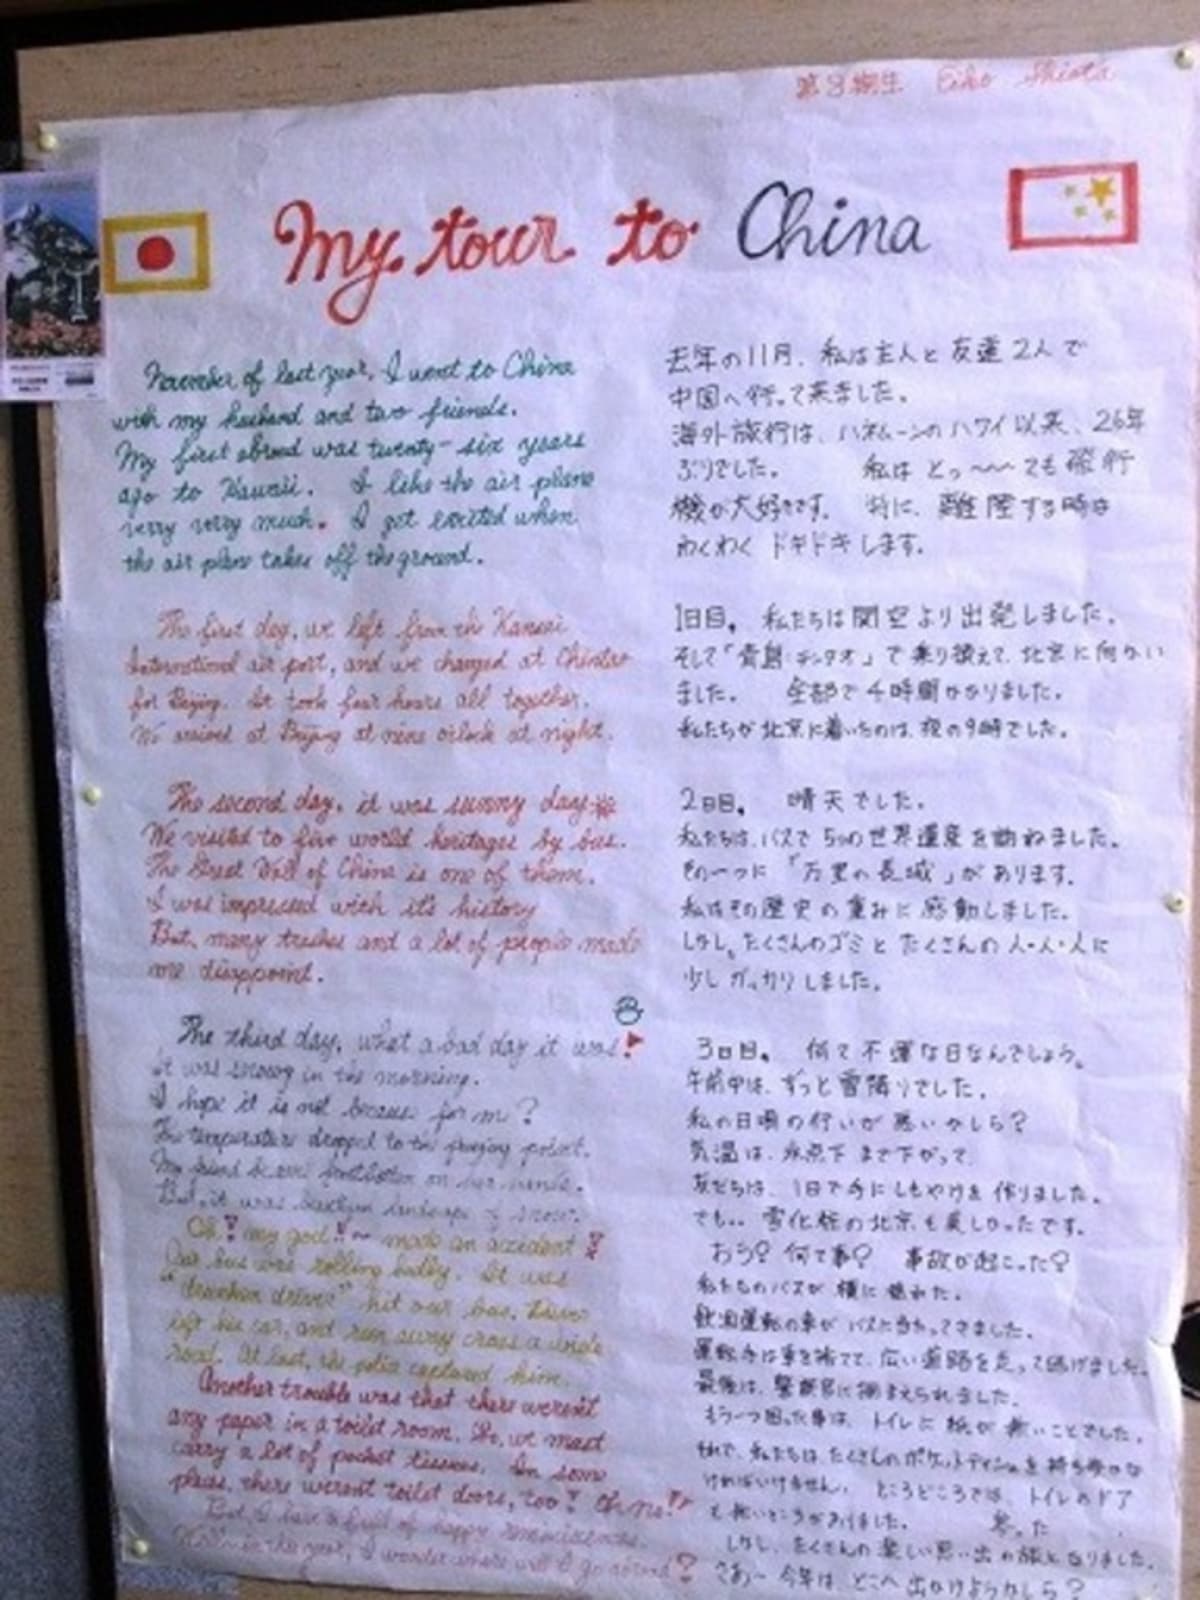 第3期生 Eiko Shiota
My tour to China
November of last year, I went to China
with my husband and two friends.
My first abroad was twenty-six years
ago to Hawaii. I like the air plane
verry verry much. I get excited when
the air plane takes off the ground.
The first day, we left from the Kansai
International air port, and we changed at Chintao
for Beijing. It took four hours all together.
We arrived at Beijing at nine o'clock at night.
The second day, it was sunny day
We visited to five world heritages by bus.
The Great Wall of China is one of them.
I was impressed with it's history
But, many trashes and a lot of people made
me disappoint.
The third day, what a bad day it was!
it was snowy in the morning.
I hope it is not because for me?
The temperature dropped to the freezing point.
My friend
But, it was landscape of snow.
Oh! my god!! made an accident!!
Our bus was rolling badly. It was
"drunken driver" hit our bus. Driver
left his car, and run away cross a wide
road. At last, the police captured him.
Another trouble was that there weren't
any paper in a toilet room. So, we must
carry a lot of pocket tissues. In some
places, there weren't toilet doors, too! Oh no!!
But, I have a full of happy reminiscences.
in this year, I wonder where will I go abroad?
去年の11月、私は主人と友達2人で
中国へ行って来ました。
海外旅行は、ハネムーンのハワイ以来、26年
ぶりでした。 私はとっ〜〜〜ても飛行
機が大好きです。 特に、離陸する時は
わくわくドキドキします。
1日目。 私たちは関空より出発しました。
そして「青島:チンタオ」で乗り換えて、北京に向かい
ました。 全部で4時間かかりました。
私たちが北京に着いたのは、夜の9時でした。
2日目。 晴天でした。
私たちは、バスで5つの世界遺産を訪ねました。
その一つに「万里の長城」があります。
私はその歴史の重みに感動しました。
しかし。たくさんのゴミとたくさんの人・人・人に
少しガッカリしました。
3日目。 何て不運な日なんでしょう。
午前中は、ずっと雪降りでした。
私の日頃の行いが悪いかしら?
気温は、氷点下まで下がって
友だちは、1日で手にしもやけを作りました。
でも.. 雪化粧の北京も美しかったです。
おう? 何て事? 事故が起こった?
私たちのバスが横に揺れた。
飲酒運転の車がバスに当たってきました。
運転手は車を捨てて、広い道路を走って逃げました。
最後は、警察官に捕まえられました。
もう一つ困った事は、トイレに紙が無いことでした。
それで、私たちはたくさんのポケットティシュを持ち歩かな
ければいけません。 ところどころでは、トイレのドア
も無いところがありました。 参った
しかし、たくさんの楽しい思い出の旅となりました。
さあ〜 今年は、どこへ出かけようかしら?